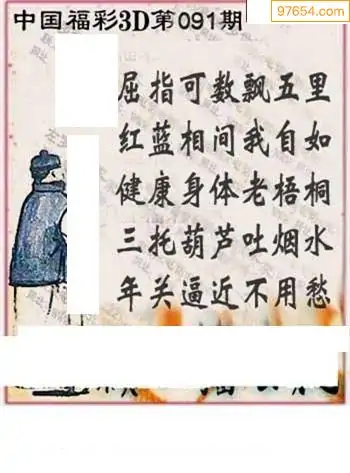 中国福彩3D第091期
97654.com
屈指可数飘五里
红蓝相间我自如
健康身体老梧桐
三托葫芦吐烟水
年关逼近不用愁